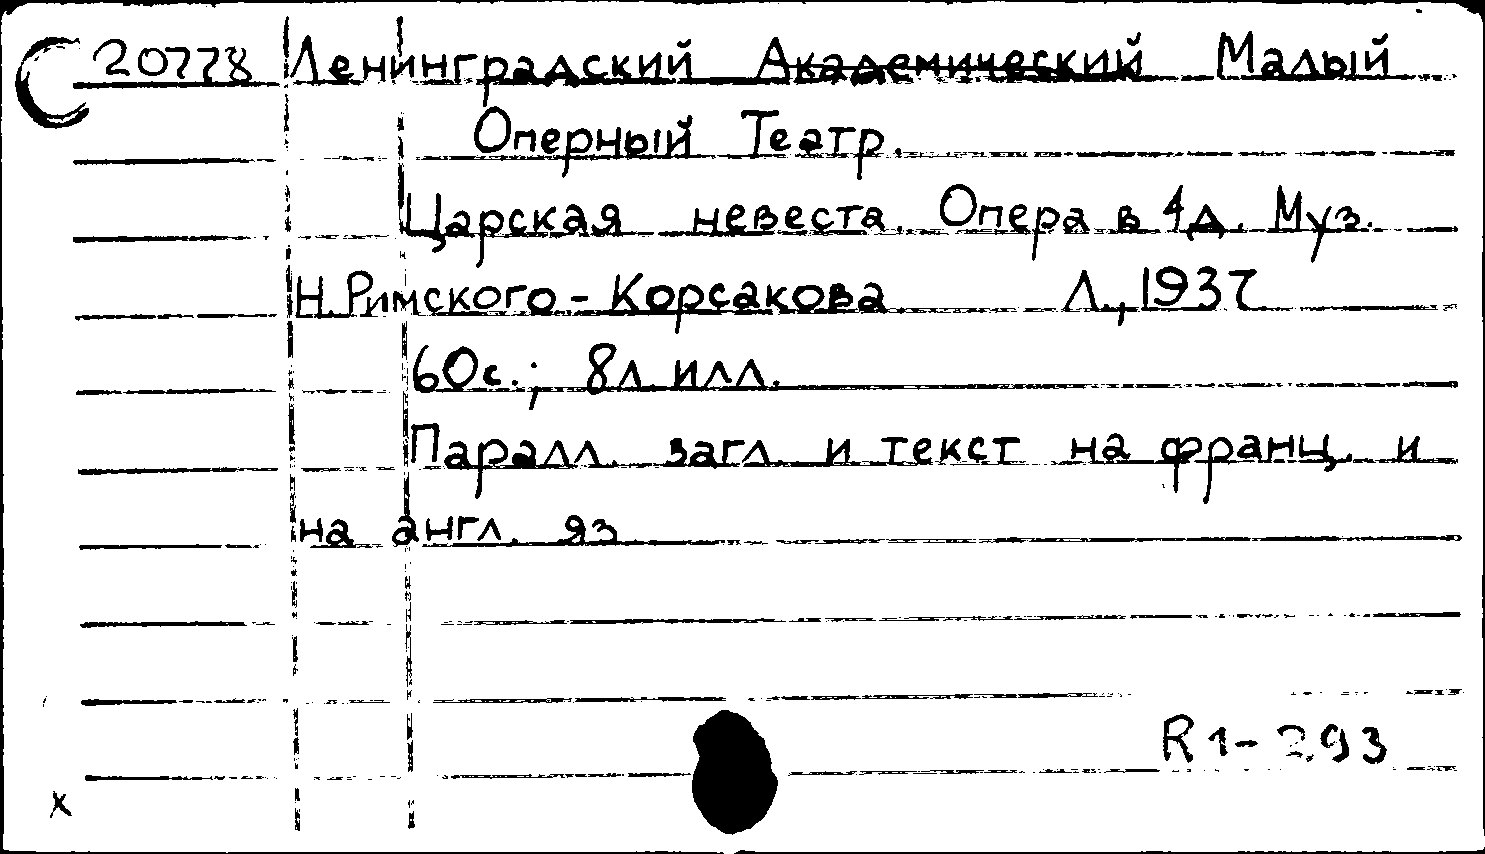 20778 Ленинградский Академический Малый
Оперный Театр.
Царская невеста. Опера в 4д. Муз.
Н. Римского-Корсакова Л., 1937
60с.; 8л. илл.
Паралл. загл. и текст на франц. и
на англ. яз
R1-293
x